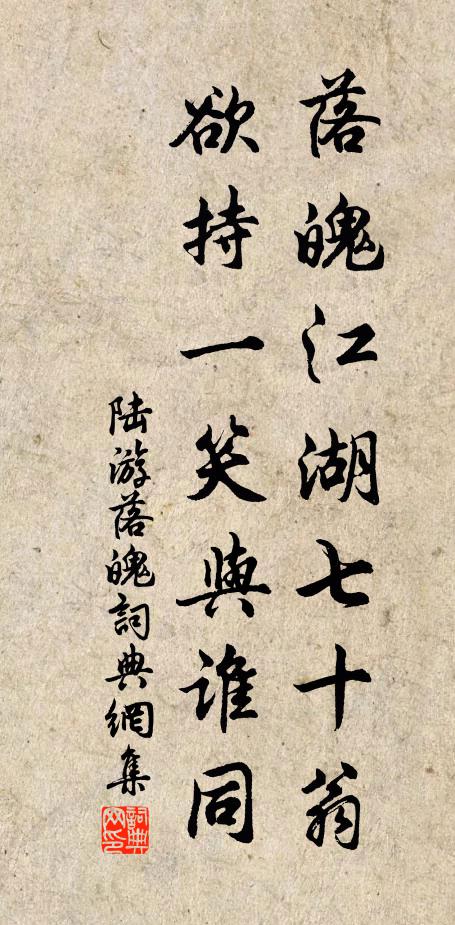 落魄江湖七十翁
欲持一笑與誰同
陆游落魄詞典網集
詞典
网印